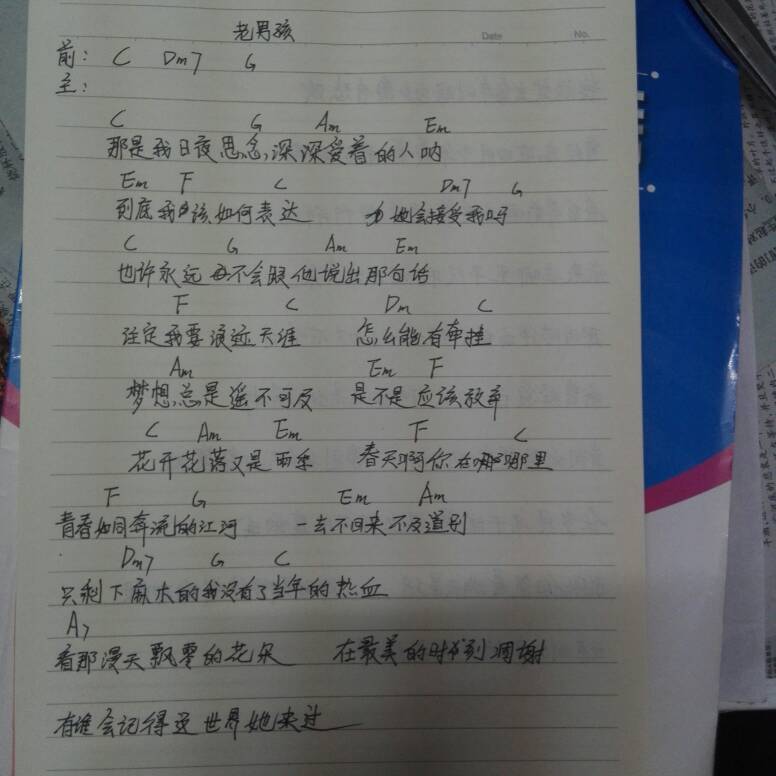 老男孩
Date No.
前: C Dm7 G
主:
C G Am Em
那是我日夜思念深深爱着的人呐
Em F C Dm7 G
到底我该如何表达 她会接受我吗
C G Am Em
也许永远都不会跟他说出那句话
F C Dm C
注定我要浪迹天涯 怎么能有牵挂
Am Em F
梦想总是遥不可及 是不是应该放弃
C Am Em F C
花开花落又是雨季 春天啊你在哪里
F G Em Am
青春如同奔流的江河 一去不回来不及道别
Dm7 G C
只剩下麻木的我没有了当年的热血
A7
看那漫天飘零的花朵 在最美的时刻凋谢
有谁会记得这世界她来过